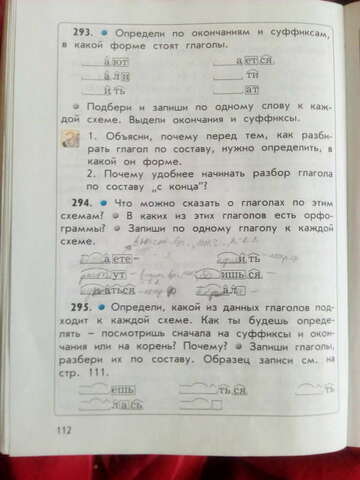 293. • Определи по окончаниям и суффиксам,
в какой форме стоят глаголы.
а ют        а ет ся
а л и        ти
и ть        ат
• Подбери и запиши по одному слову к каж-
дой схеме. Выдели окончания и суффиксы.
1. Объясни, почему перед тем, как разби-
рать глагол по составу, нужно определить, в
какой он форме.
2. Почему удобнее начинать разбор глагола
по составу „с конца"?
294. • Что можно сказать о глаголах по этим
схемам? • В каких из этих глаголов есть орфо-
граммы? • Запиши по одному глаголу к каждой
схеме.
а ете –        и ть
ут –        ишь ся –
а ть ся –        а л а –
295. • Определи, какой из данных глаголов под-
ходит к каждой схеме. Как ты будешь опреде-
лять – посмотришь сначала на суффиксы и окон-
чания или на корень? Почему? • Запиши глаголы,
разбери их по составу. Образец записи см. на
стр. 111.
ешь        ть ся        ть
л а сь
112